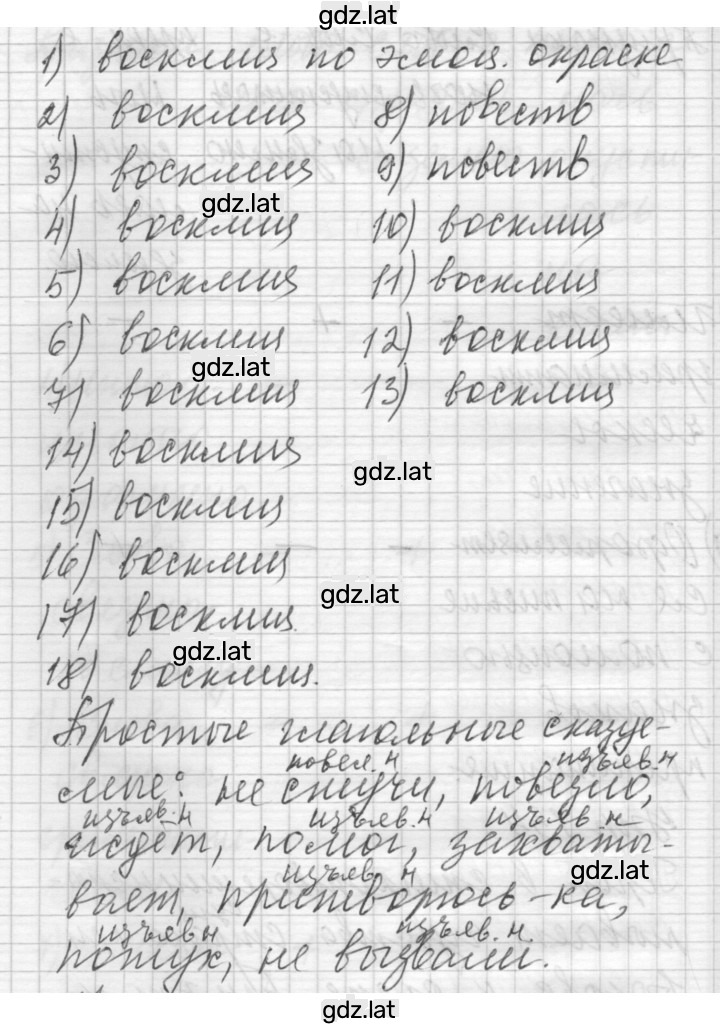 gdz.lat
1) восклиц по эмоц. окраске
2) восклиц 8) повеств
3) восклиц 9) повеств
gdz.lat
4) восклиц 10) восклиц
5) восклиц 11) восклиц
6) восклиц 12) восклиц
gdz.lat
7) восклиц 13) восклиц
14) восклиц
gdz.lat
15) восклиц
16) восклиц
gdz.lat
17) восклиц
gdz.lat
18) восклиц.
Простые глагольные сказуе-
повел. н изъяв. н
мые: не стучи, повезло,
изъяв. н изъяв. н изъяв н
ждет, помог, захваты-
изъяв. н gdz.lat
вает, притворюсь-ка,
изъяв н изъяв. н.
потух, не вызвали.
gdz.lat